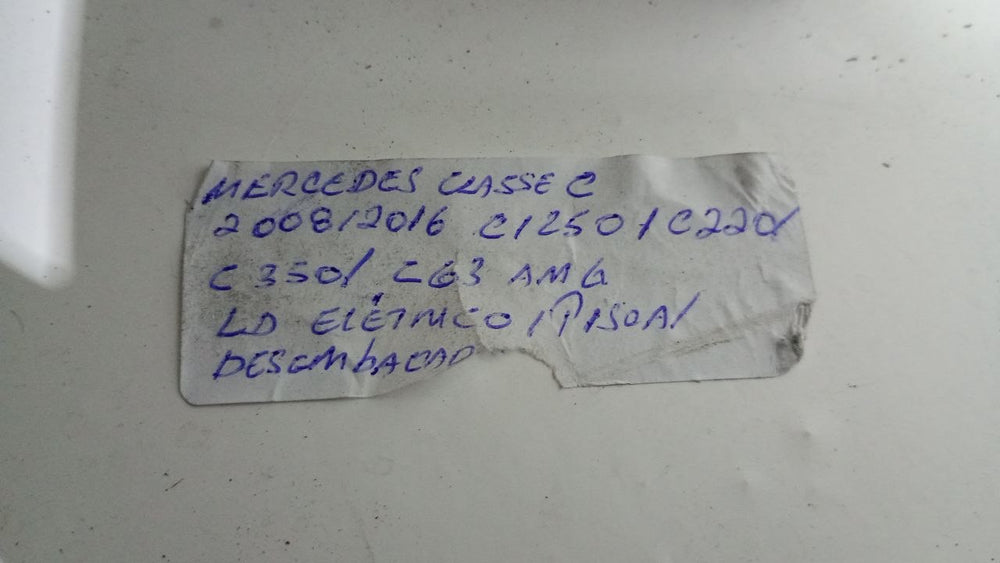 MERCEDES CLASSE C
2008/2016 C/250/C220/
C350/ C63 AMG
LD ELÉTRICO/PISCA/
DESEMBAÇAD